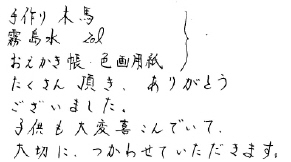 手作り 木馬
霧島水 20l
おえかき帳・色画用紙
たくさん頂き、ありがとう
ございました。
子供も大変喜こんでいて、
大切に、つかわせていただきます。